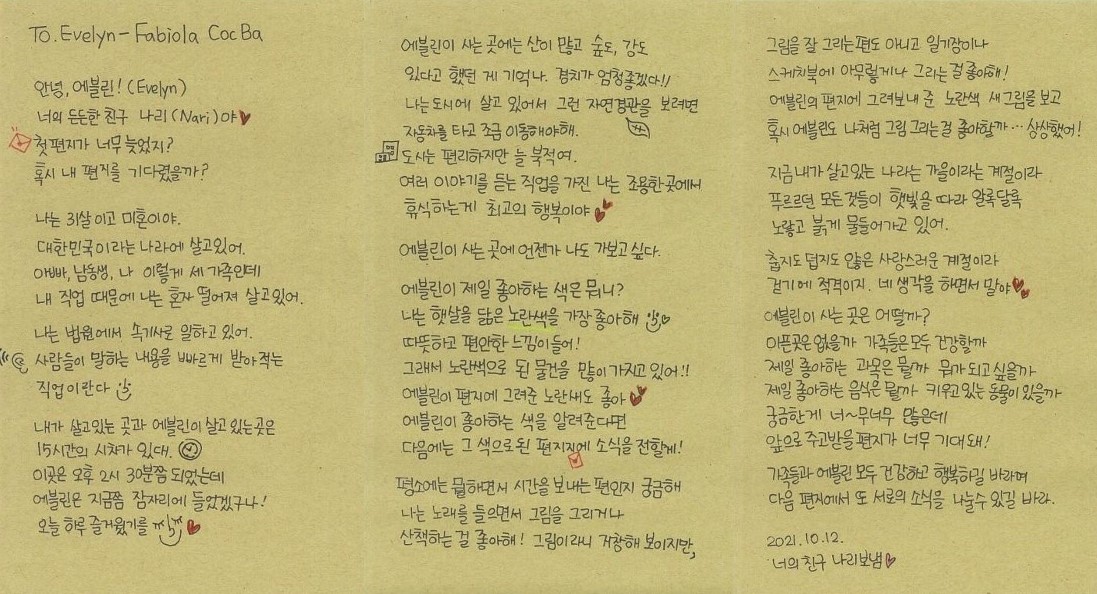 To. Evelyn - Fabiola Coc Ba
안녕, 에블린! (Evelyn)
너의 든든한 친구 나리(Nari)야
첫 편지가 너무 늦었지?
혹시 내 편지를 기다렸을까?
나는 31살이고 미혼이야.
대한민국이라는 나라에 살고있어.
아빠, 남동생, 나 이렇게 세 가족인데
내 직업 때문에 나는 혼자 떨어져 살고있어.
나는 법원에서 속기사로 일하고 있어.
사람들이 말하는 내용을 빠르게 받아 적는
직업이란다
내가 살고있는 곳과 에블린이 살고 있는곳은
15시간의 시차가 있대.
이곳은 오후 2시 30분쯤 되었는데
에블린은 지금쯤 잠자리에 들었겠구나!
오늘 하루 즐거웠기를
에블린이 사는 곳에는 산이 많고 숲도, 강도
있다고 했던 게 기억나. 경치가 엄청좋겠다!!
나는 도시에 살고 있어서 그런 자연경관을 보려면
자동차를 타고 조금 이동해야해.
도시는 편리하지만 늘 북적여.
여러 이야기를 듣는 직업을 가진 나는 조용한곳에서
휴식하는게 최고의 행복이야
에블린이 사는 곳에 언젠가 나도 가보고 싶다.
에블린이 제일 좋아하는 색은 뭐니?
나는 햇살을 닮은 노란색을 가장 좋아해
따뜻하고 편안한 느낌이들어!
그래서 노란색으로 된 물건을 많이 가지고 있어!!
에블린이 편지에 그려준 노란새도 좋아
에블린이 좋아하는 색을 알려준다면
다음에는 그 색으로된 편지지에 소식을 전할게!
평소에는 뭘하면서 시간을 보내는 편인지 궁금해
나는 노래를 들으면서 그림을 그리거나
산책하는 걸 좋아해! 그림이라니 거창해 보이지만,
그림을 잘 그리는편도 아니고 일기장이나
스케치북에 아무렇게나 그리는걸 좋아해!
에블린의 편지에 그려보내 준 노란색 새그림을 보고
혹시 에블린도 나처럼 그림 그리는걸 좋아할까… 상상했어!
지금 내가 살고있는 나라는 가을이라는 계절이라
푸르르던 모든것들이 햇빛을 따라 알록달록
노랗고 붉게 물들어가고 있어.
춥지도 덥지도 않은 사랑스러운 계절이라
걷기에 적격이지. 네 생각을 하면서 말야
에블린이 사는 곳은 어떨까?
아픈곳은 없을까 가족들은 모두 건강할까
제일 좋아하는 과목은 뭘까 뭐가 되고 싶을까
제일 좋아하는 음식은 뭘까 키우고 있는 동물이 있을까
궁금한게 너~무너무 많은데
앞으로 주고받을 편지가 너무 기대돼!
가족들과 에블린 모두 건강하고 행복하길 바라며
다음 편지에서 또 서로의 소식을 나눌수 있길 바라.
2021. 10. 12.
너의 친구 나리보냄